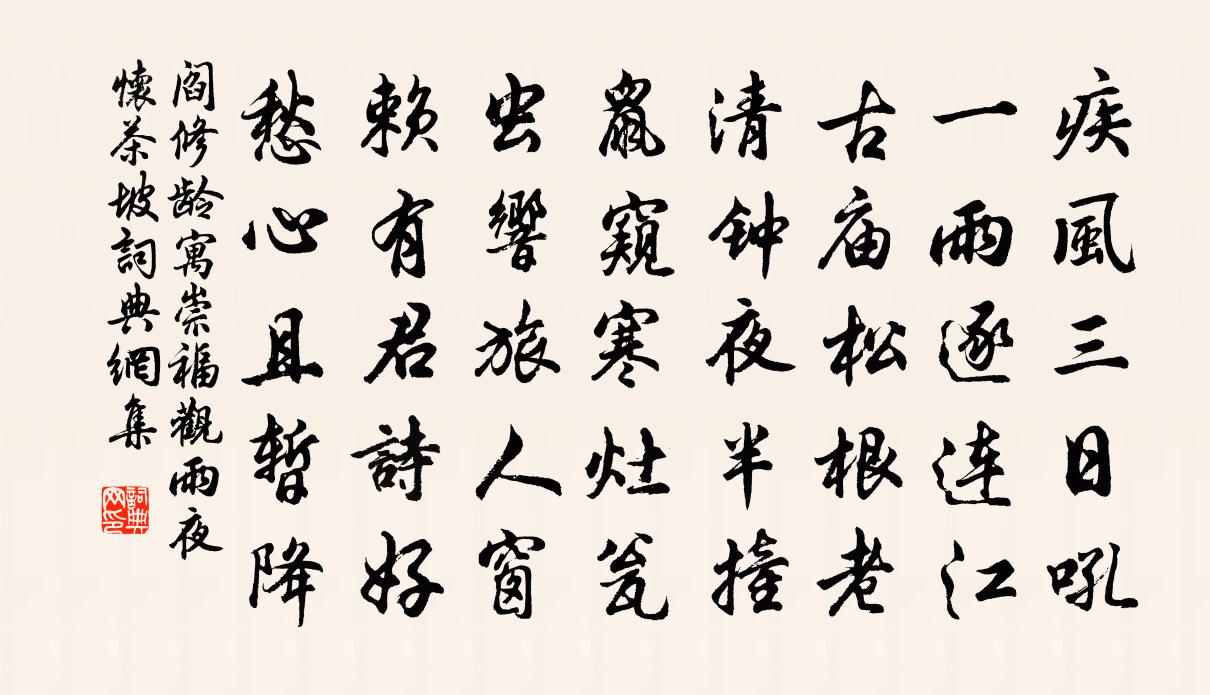 疾風三日吼
一雨逐连江
古庙松根老
清钟夜半撞
鼠窺寒灶瓮
虫響旅人窗
赖有君詩好
愁心且暫降
阎修龄寓崇福觀雨夜
懷茶坡詞典網集
詞典网印